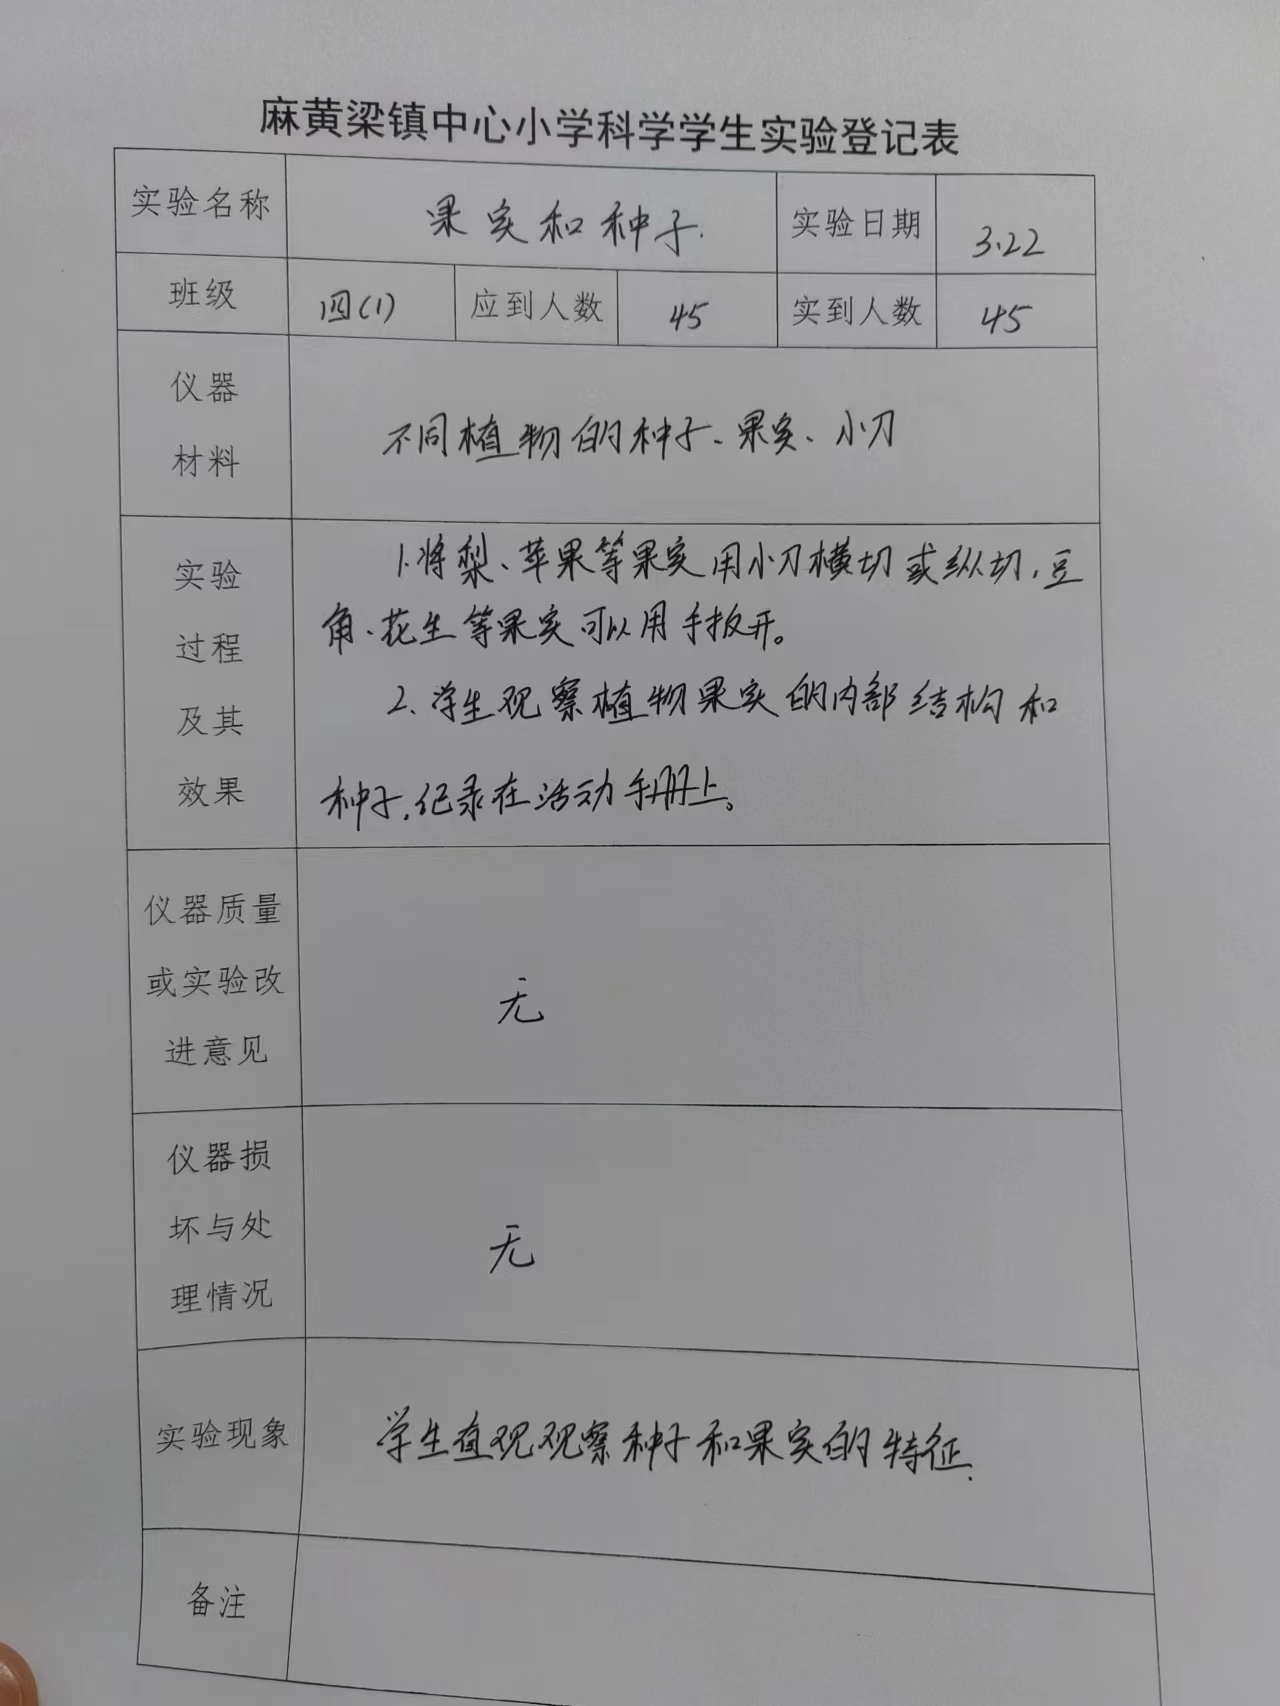 麻黄梁镇中心小学科学学生实验登记表
实验名称 果实和种子. 实验日期 3.22
班级 四(1) 应到人数 45 实到人数 45
仪器
材料
不同植物的种子、果实、小刀
实验
过程
及其
效果
1.将梨、苹果等果实用小刀横切或纵切,豆
角、花生等果实可以用手扳开。
2、学生观察植物果实的内部结构和
种子,记录在活动手册上。
仪器质量
或实验改
进意见
无
仪器损
坏与处
理情况
无
实验现象 学生直观观察种子和果实的特征.
备注